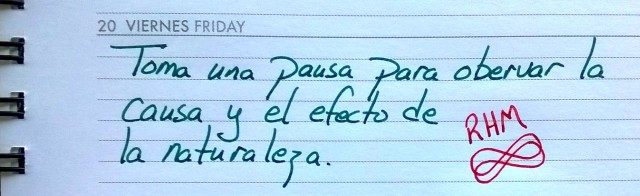 20 VIERNES FRIDAY
Toma una pausa para obervar la
causa y el efecto de
la naturaleza.
RHM